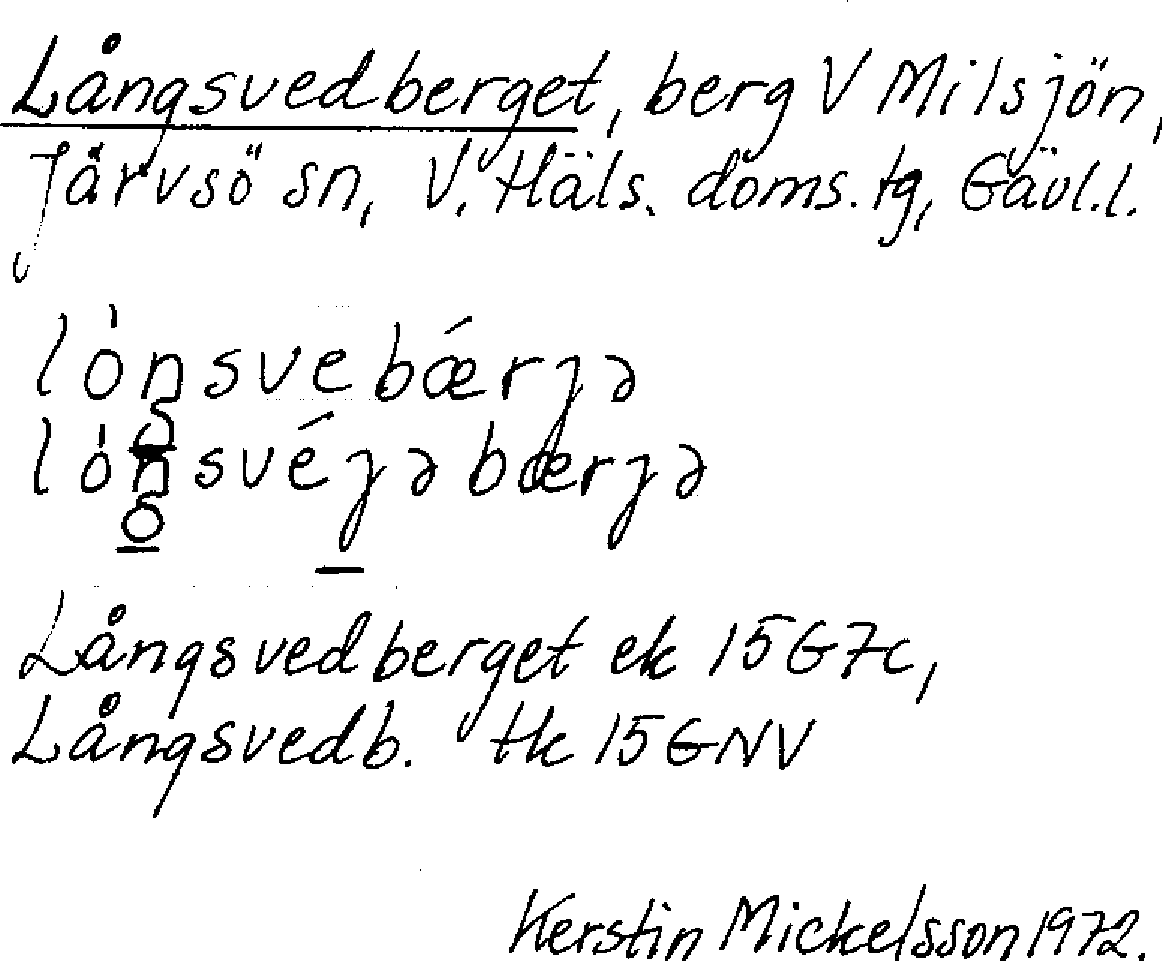 Långsvedberget, berg V Milsjön,
Järvsö sn, V. Häls. doms. tg, Gävl.l.
lóŋsvebǽrȷə
lóŋsvéȷəbærȷə
Långsvedberget ek 15G7c,
Långsvedb. tk 15GNV
Kerstin Mickelsson 1972.